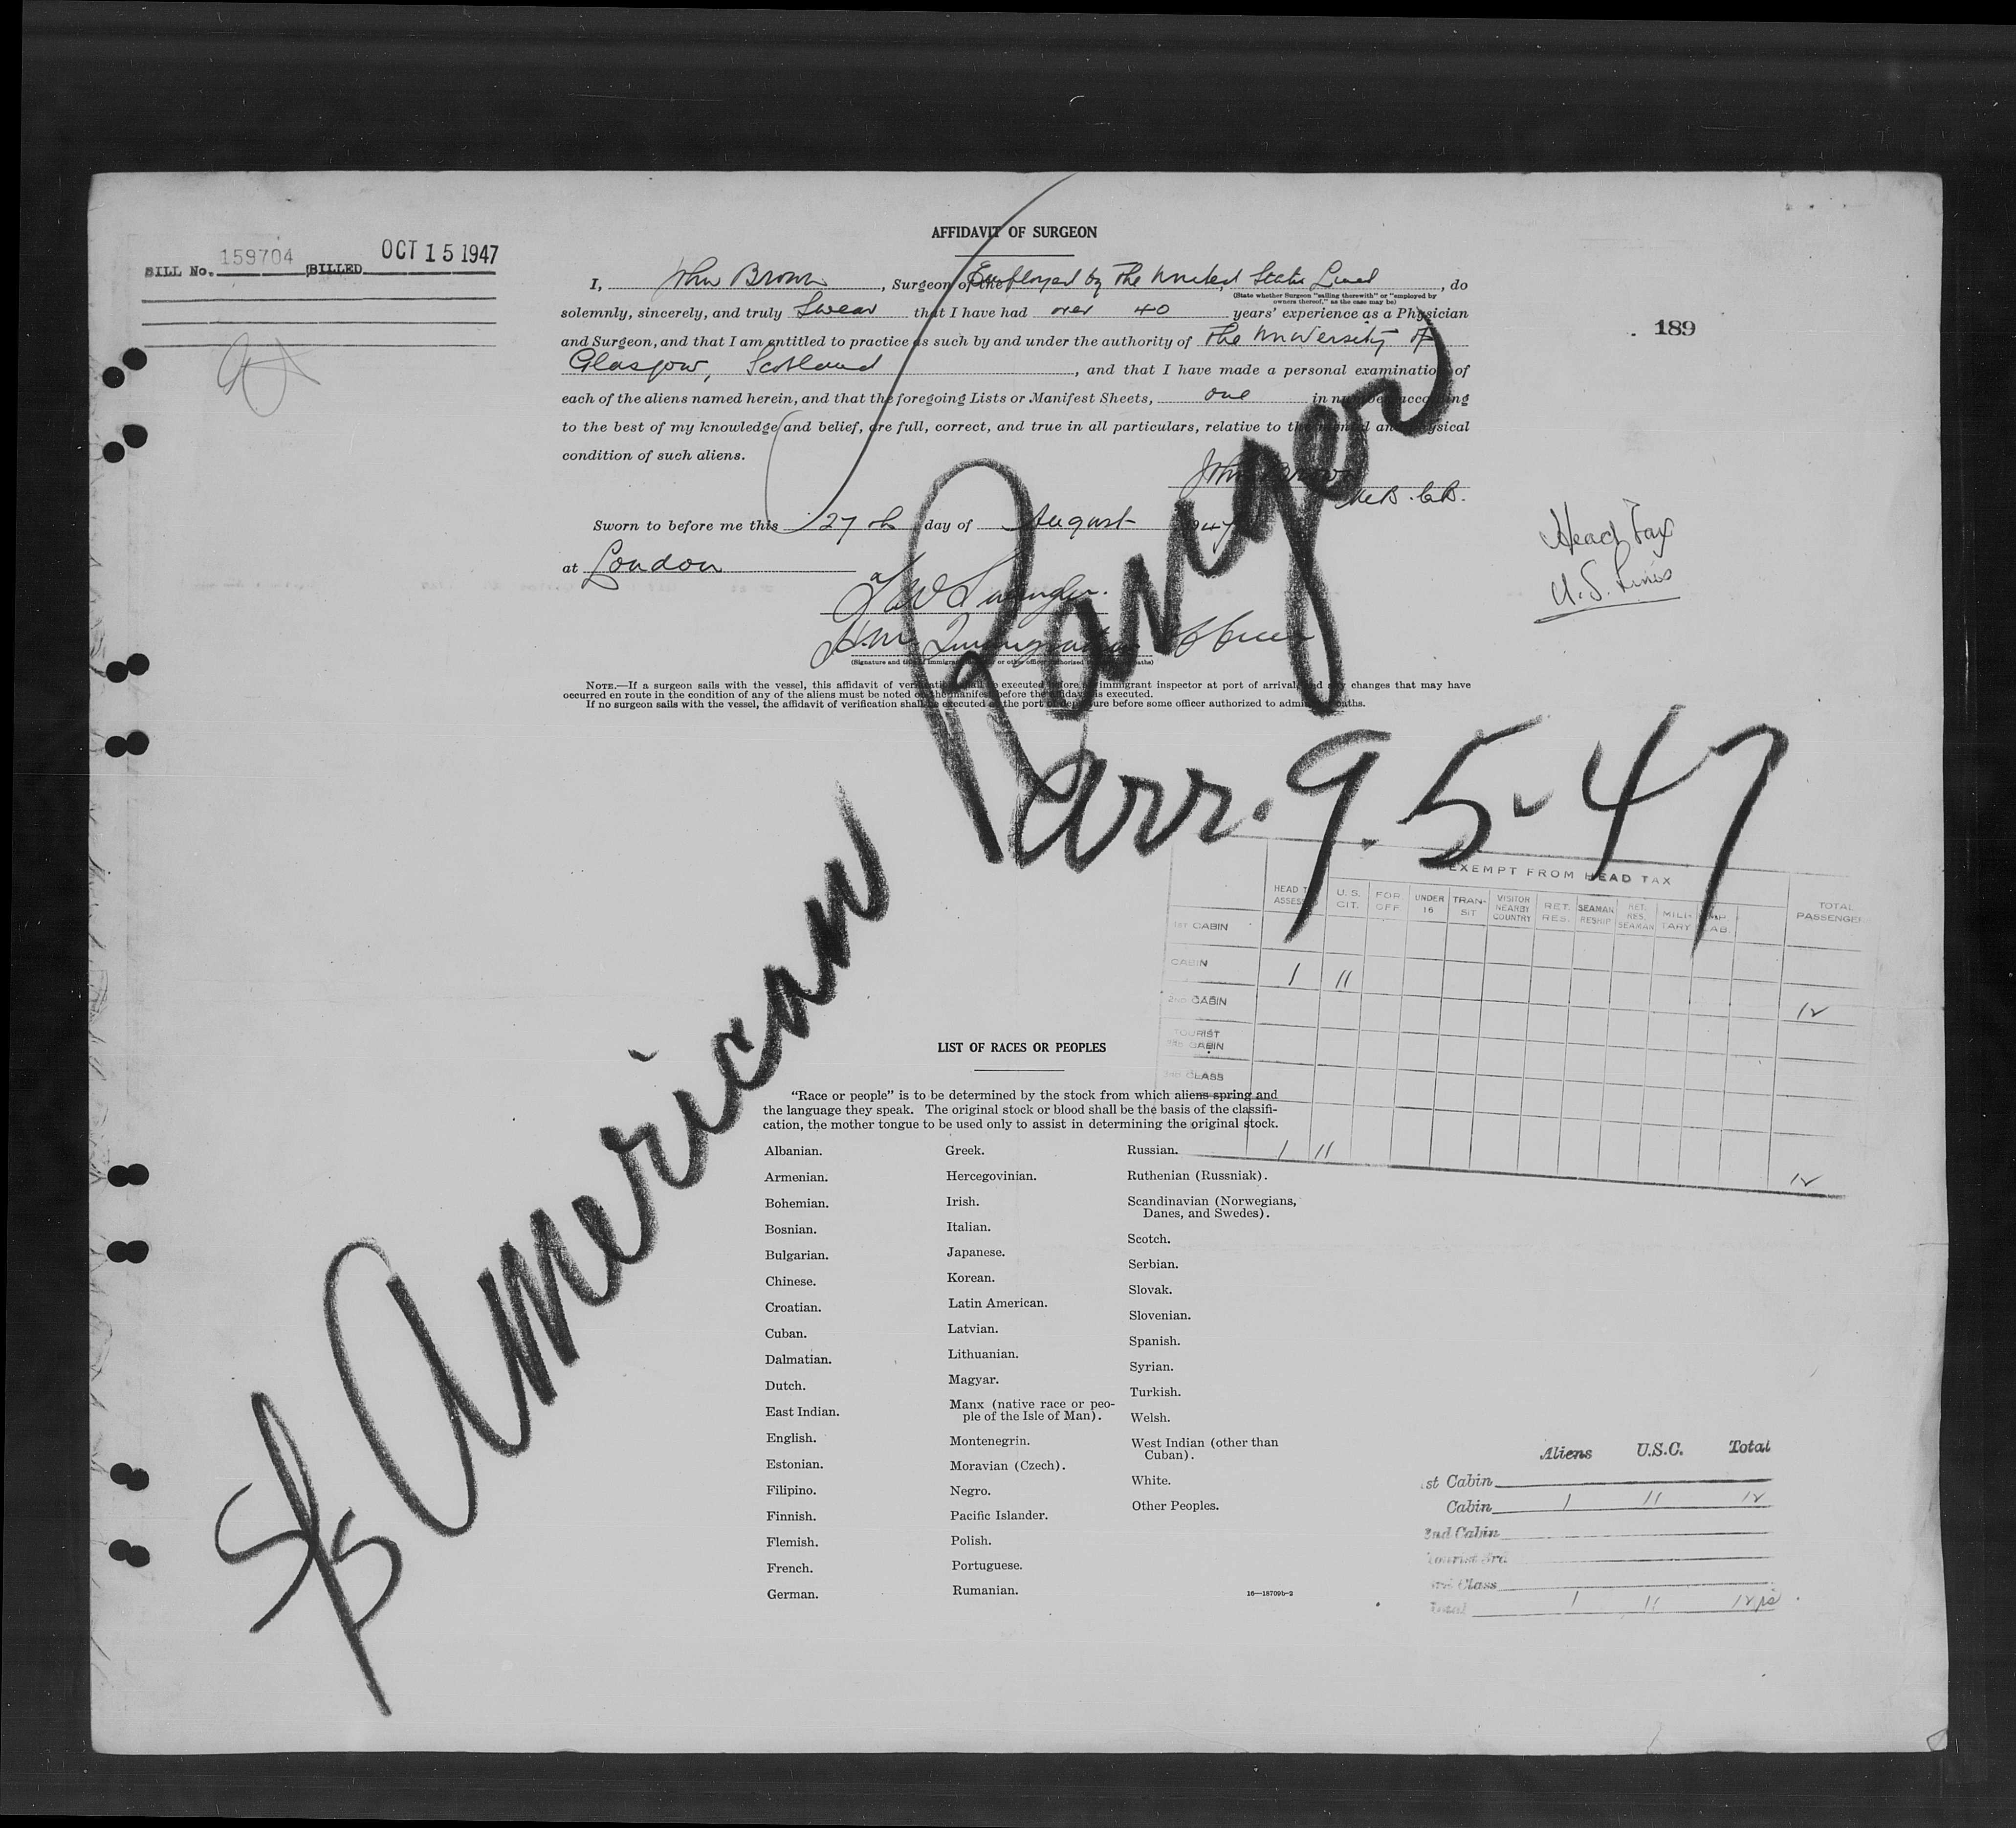 BILL No. 159704 BILLED OCT 15 1947
AFFIDAVIT OF SURGEON
I, John Brown, Surgeon of the Employed by The United States Lines, do
(State whether Surgeon "sailing therewith" or "employed by
owners thereof," as the case may be)
solemnly, sincerely, and truly Swear that I have had over 40 years' experience as a Physician
and Surgeon, and that I am entitled to practice as such by and under the authority of The University of
Glasgow, Scotland, and that I have made a personal examination of
each of the aliens named herein, and that the foregoing Lists or Manifest Sheets, one in number, according
to the best of my knowledge and belief, are full, correct, and true in all particulars, relative to the mental and physical
condition of such aliens.
John Brown
M.B. Ch.B.
Sworn to before me this 27th day of August 1947
at London
H.M. Immigration Officer
(Signature and title of immigrant or other officer authorized oaths)
NOTE.—If a surgeon sails with the vessel, this affidavit of verification shall be executed before immigrant inspector at port of arrival, and any changes that may have
occurred en route in the condition of any of the aliens must be noted on the manifest before the affidavit is executed.
If no surgeon sails with the vessel, the affidavit of verification shall be executed at the port of departure before some officer authorized to administer oaths.
189
Head Tax
U.S. Lines
S/S American Ranger
arr. 9.5-47
EXEMPT FROM HEAD TAX
HEAD TAX ASSES. U.S. CIT. FOR. OFF. UNDER 16 TRANSIT VISITOR NEARBY COUNTRY RET. RES. SEAMAN RESHIP RET. RES. SEAMAN MILITARY LAB. TOTAL PASSENGE
1ST CABIN
CABIN 1 11
2ND CABIN 12
TOURIST
3RD CABIN
3RD CLASS
1 11 12
LIST OF RACES OR PEOPLES
"Race or people" is to be determined by the stock from which aliens spring and
the language they speak. The original stock or blood shall be the basis of the classifi-
cation, the mother tongue to be used only to assist in determining the original stock.
Albanian.
Armenian.
Bohemian.
Bosnian.
Bulgarian.
Chinese.
Croatian.
Cuban.
Dalmatian.
Dutch.
East Indian.
English.
Estonian.
Filipino.
Finnish.
Flemish.
French.
German.
Greek.
Hercegovinian.
Irish.
Italian.
Japanese.
Korean.
Latin American.
Latvian.
Lithuanian.
Magyar.
Manx (native race or peo-
ple of the Isle of Man).
Montenegrin.
Moravian (Czech).
Negro.
Pacific Islander.
Polish.
Portuguese.
Rumanian.
Russian.
Ruthenian (Russniak).
Scandinavian (Norwegians,
Danes, and Swedes).
Scotch.
Serbian.
Slovak.
Slovenian.
Spanish.
Syrian.
Turkish.
Welsh.
West Indian (other than
Cuban).
White.
Other Peoples.
16—18709b-2
Aliens U.S.C. Total
1st Cabin
Cabin 1 11 12
2nd Cabin
Tourist 3rd
3rd Class
Total 1 11 12